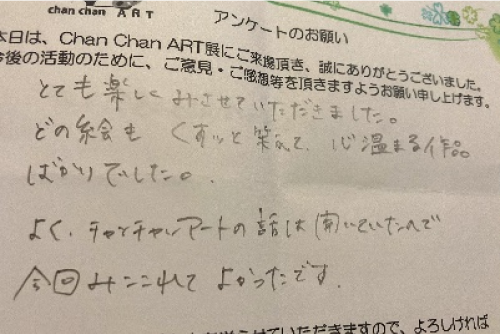 chan chan ART
アンケートのお願い
本日は、Chan Chan ART展にご来場頂き、誠にありがとうございました。
今後の活動のために、ご意見・ご感想等を頂きますようお願い申し上げます。
とても楽しくみさせていただきました。
どの絵も くすッと笑えて、心温まる作品
ばかりでした。
よく、チャンチャンアートの話は聞いていたので
今回 みにこれて よかったです。
ただきますので、よろしければ